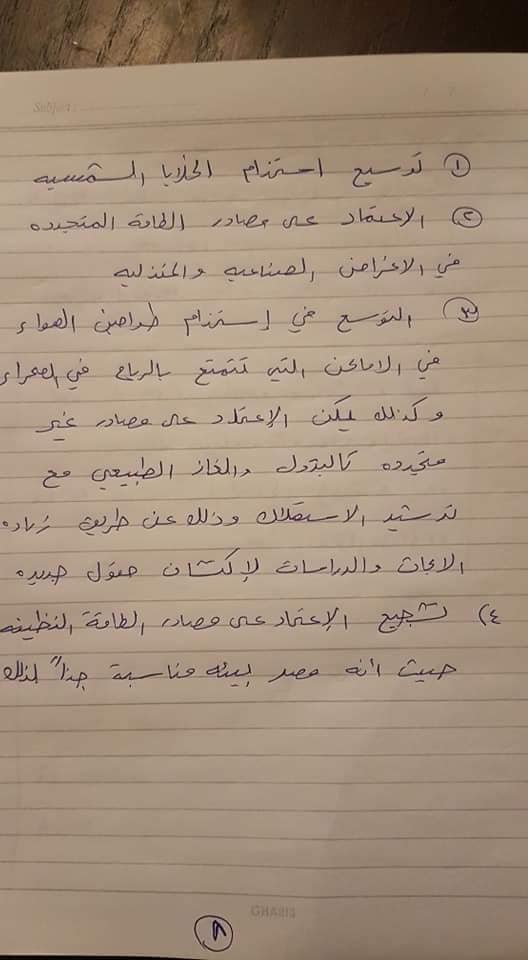 Subject:
① توسيع استخدام الخلايا الشمسيه
② الاعتماد على مصادر الطاقة المتجدده
في الاغراض الصناعيه والمنزليه
③ التوسع في إستخدام طواحين الهواء
في الاماكن التي تتمتع بالرياح في الصحراء
وكذلك يمكن الإعتماد على مصادر غير
متجدده كالبترول والغاز الطبيعي مع
ترشيد الاستهلاك وذلك عن طريق زياده
الابحاث والدراسات لإكتشاف حقول جديده
٤) تشجيع الإعتماد على مصادر الطاقة النظيفه
حيث أنه مصر بيئه مناسبة جداً لذلك
٨